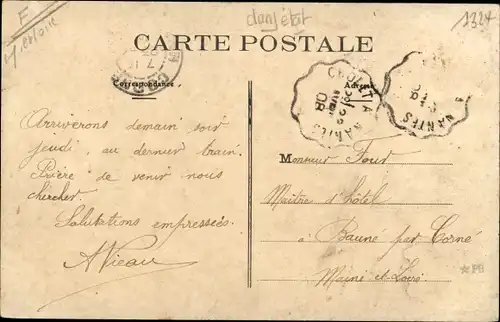 dans état
1324
CARTE POSTALE
Correspondance
Adresse
CHOLET A NANTES
08
NANTES
Arriverons demain soir
jeudi, au dernier train.
Prière de venir nous
chercher.
Salutations empressées.
AVieau
Monsieur Four
Maitre d'hôtel
à Bauné par Corné
Maine et Loire